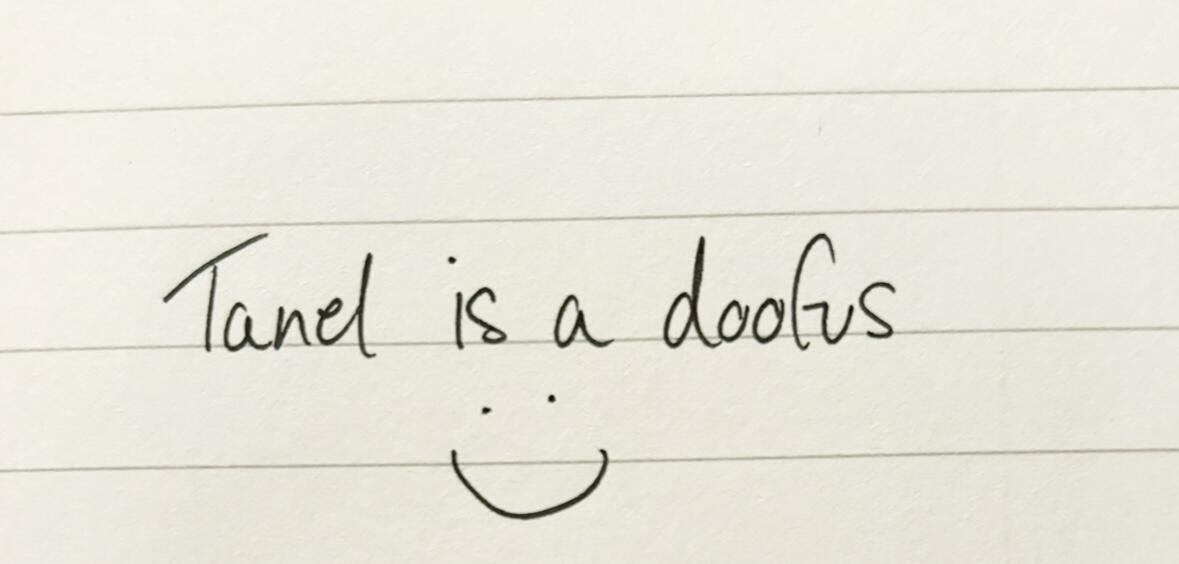 Tanel is a doofus